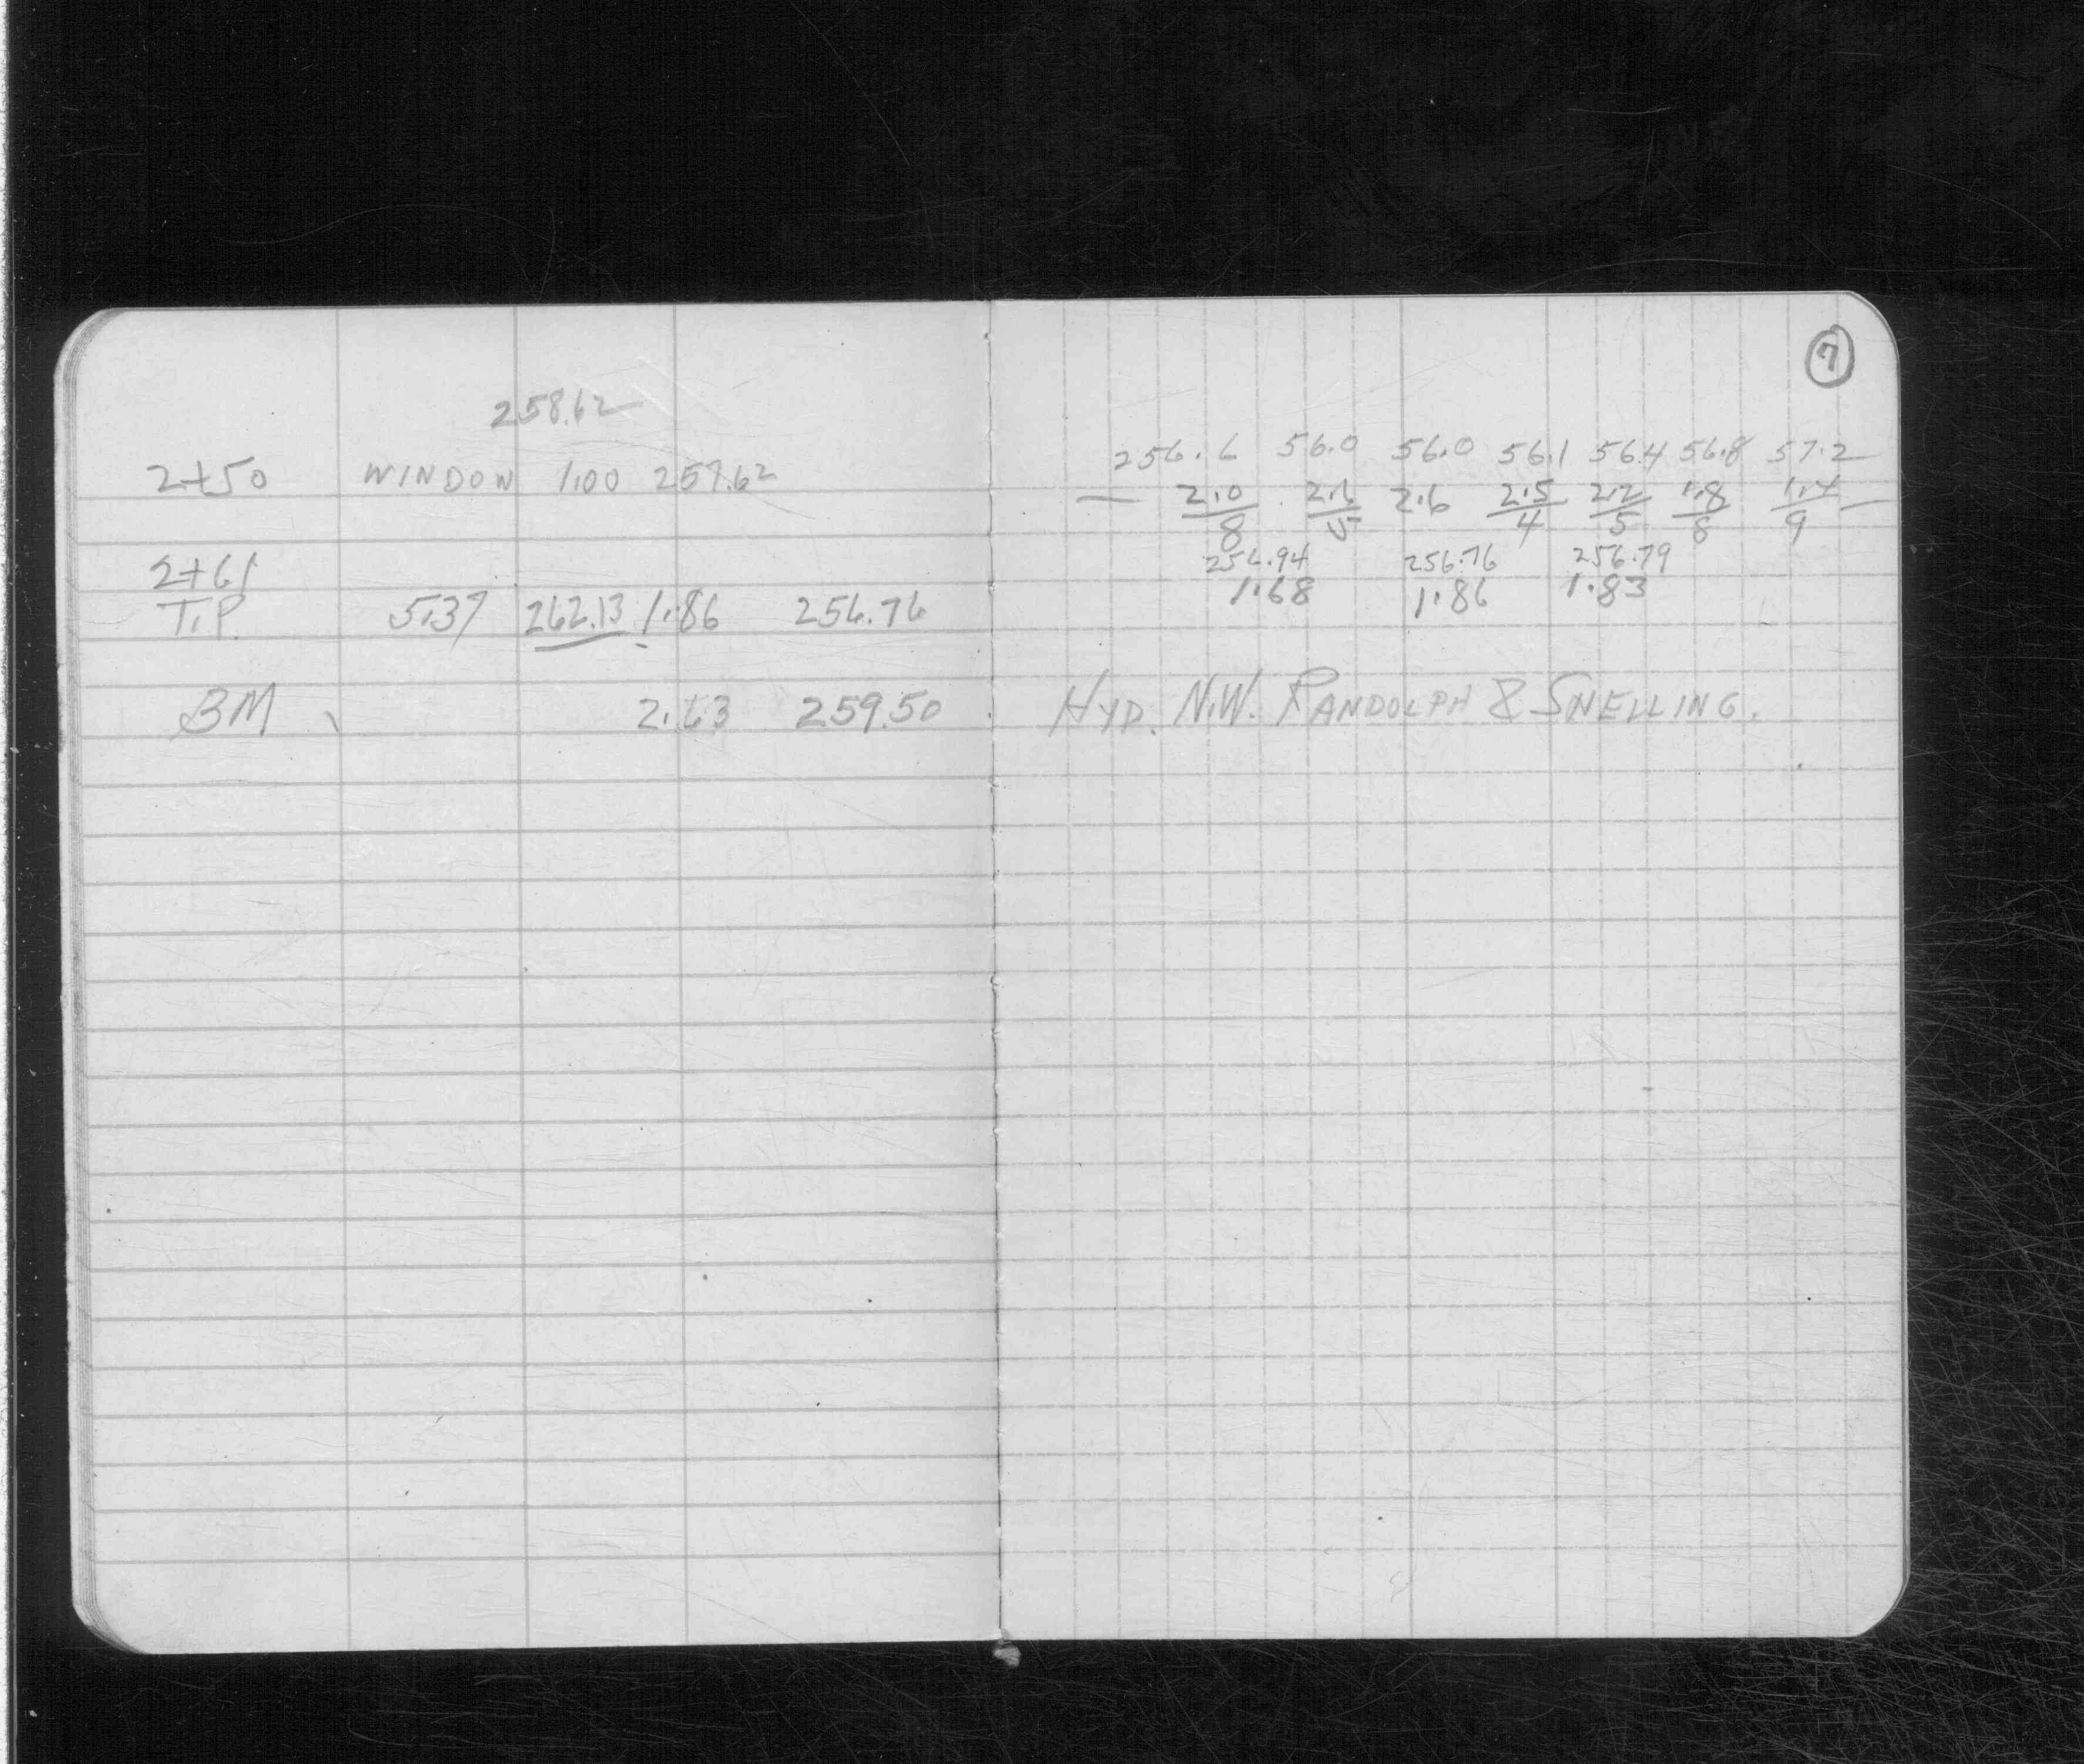 7
258.62
2+50 WINDOW 1.00 257.62
256.6 56.0 56.0 56.1 56.4 56.8 57.2
— 2.0/8 2.6/5 2.6 2.5/4 2.2/5 1.8/8 1.4/9 —
2+61
256.94 256.76 256.79
T.P. 5.37 262.13 1.86 256.76
1.68 1.86 1.83
BM 2.63 259.50 HYD. N.W. RANDOLPH & SNELLING.